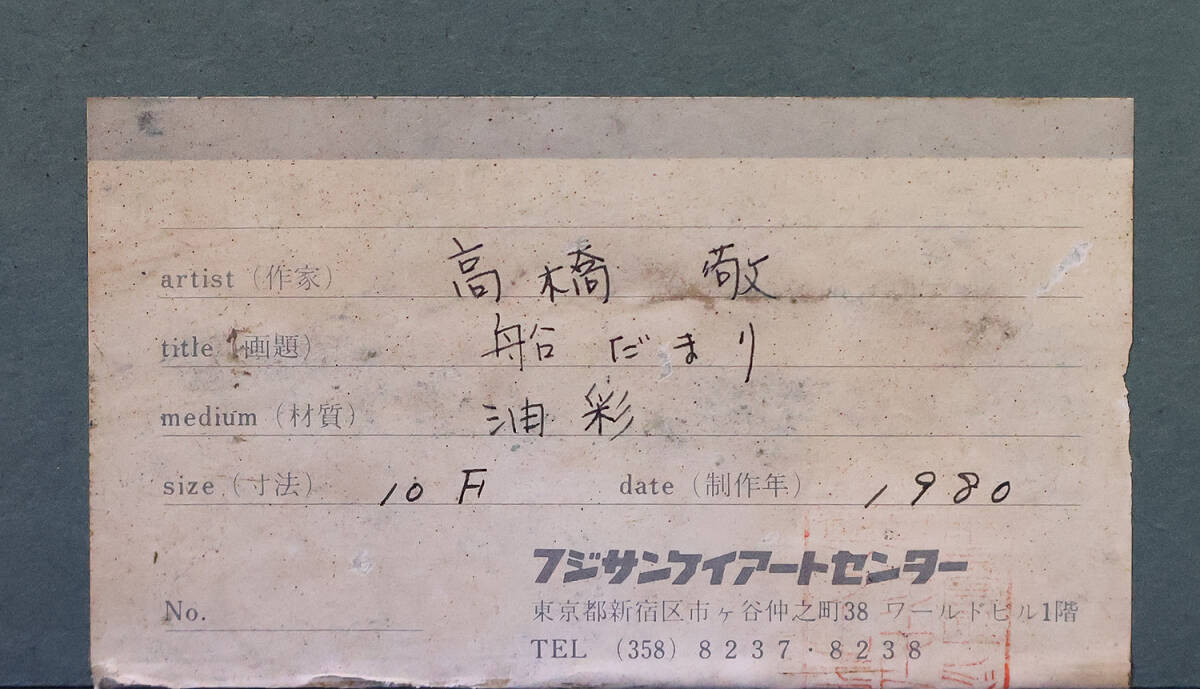 artist (作家) 高橋 敬
title (画題) 船だまり
medium (材質) 油彩
size (寸法) 10F date (制作年) 1980
フジサンケイアートセンター
No. 東京都新宿区市ヶ谷仲之町38 ワールドビル1階
TEL (358) 8237・8238